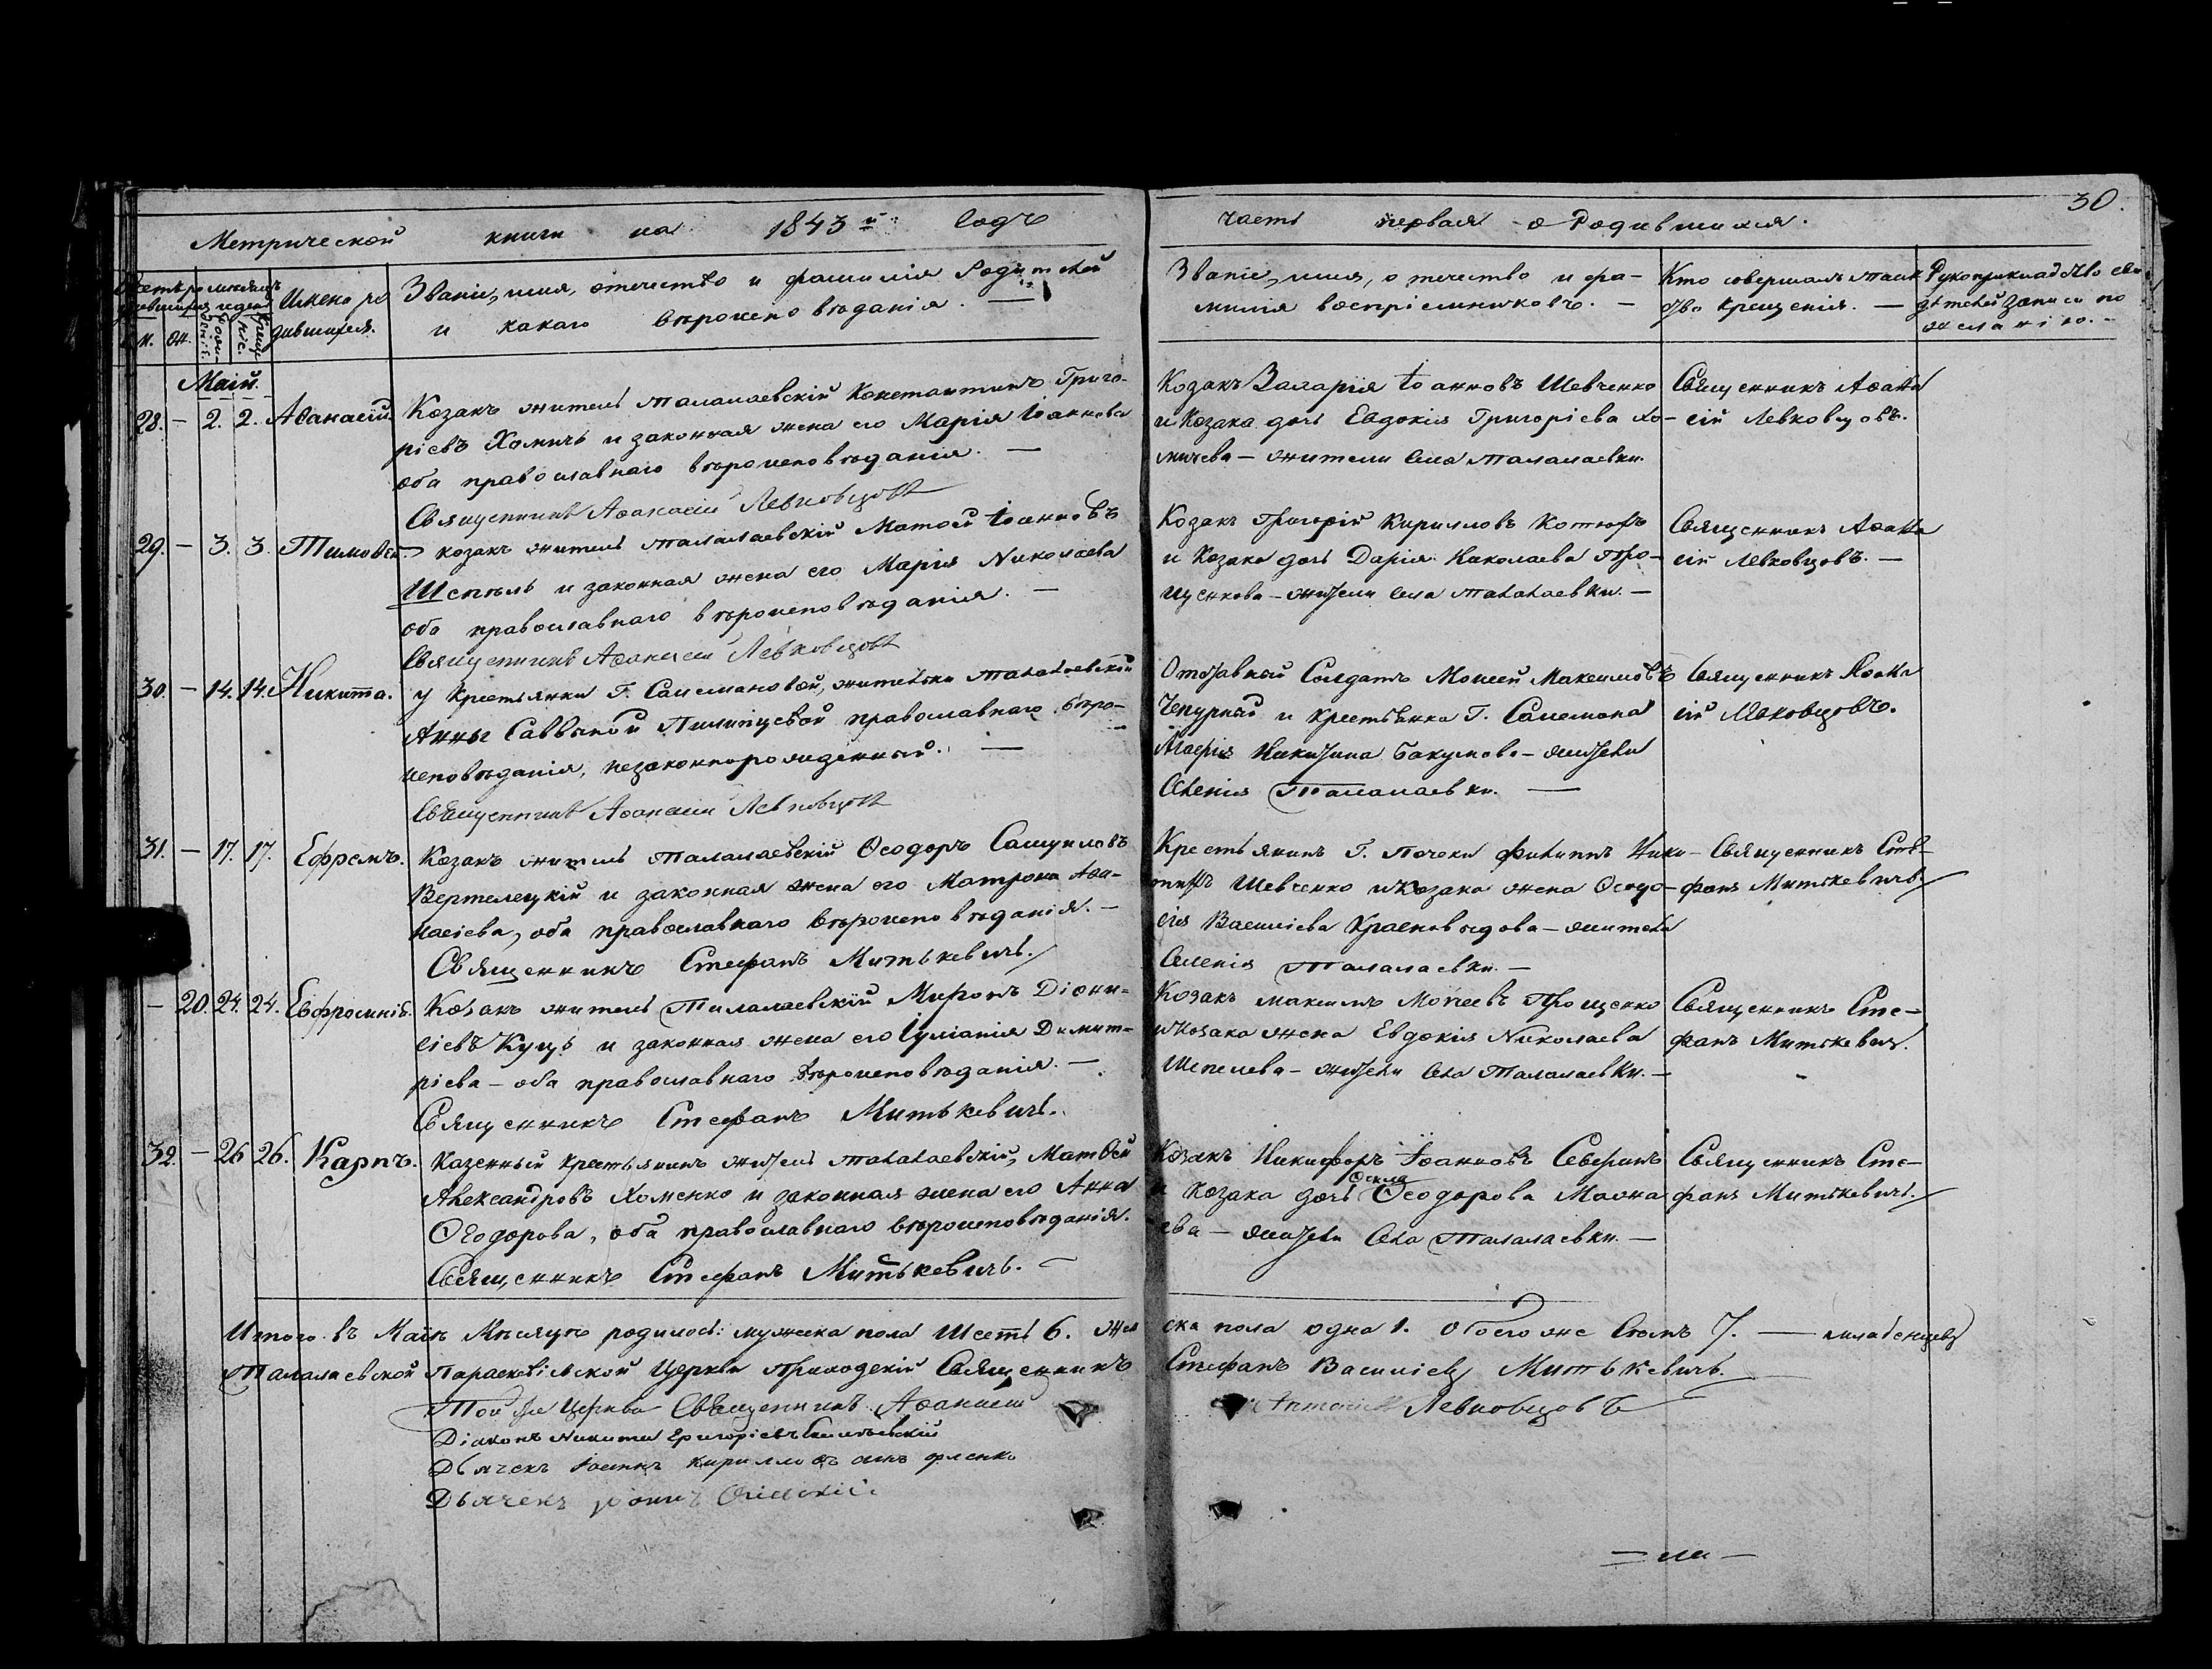 30.
Метрической книги на 1843й Годъ часть первая о Родившихся.
Имена ро
дившихся.
Званіе, имя, отечество и фамилія Родителей
и какаго вѣроисповѣданія. —
Званіе, имя, отечество и фа-
милія воспріемниковъ. —
Кто совершалъ таин
ство крещенія. —
Рукоприкладство сви
дѣтелей записи по
желанію. -
м. ж.
Маій.
28. — 2. 2. Аѳанасій
Козакъ житель талалаевскій Константинъ Григо-
ріевъ Хомичъ и законная жена его Марія Іоаннова
оба православнаго вѣроисповѣданія. —
Священникъ Аѳанасій Левковцовъ
Козакъ Захарія Іоанновъ Шевченко
и Козака дочь Евдокія Григоріева Хо-
мичева — жители села талалаевки.
Священникъ Аѳана
сій Левковцовъ.
29. — 3. 3. Тимоѳей
козакъ житель талалаевскій Матѳей Іоанновъ
Шепель и законная жена его Марія Николаева
оба православнаго вѣроисповѣданія. —
Священникъ Аѳанасій Левковцовъ
Козакъ Григорій Кирилловъ Котюхъ
и Козака дочь Дарія Николаева Про-
щенкова — жители села талалаевки. —
Священникъ Аѳана
сій Левковцовъ. —
30. — 14. 14. Никита.
у крестьянки Г. Салемановой, жительки талалаевской
Анны Саввиной Пилипцевой православнаго вѣро-
исповѣданія, незаконнорожденный. —
Священникъ Аѳанасій Левковцовъ
Отставный Солдатъ Моисей Максимовъ
Чепурный и крестьянка Г. Салемана
Марія Никитина Бакумова — жители
Селенія Талалаевки. —
Священникъ Аѳана
сій Левковцовъ.
31. — 17. 17. Ефремъ.
Козакъ житель талалаевскій Ѳеодоръ Самуиловъ
Вертелецкій и законная жена его Матрона Аѳа-
насіева, оба православнаго вѣроисповѣданія. —
Священникъ Стефанъ Митькевичъ.
Крестьянинъ Г. Почеки Филиппъ Ники-
тинъ Шевченко и Козака жена Ѳеодо-
сія Василіева Красновидова — жители
Селенія Талалаевки. —
Священникъ Сте-
фанъ Митькевичъ.
— 20. 24. 24. Евфросинія.
Козакъ житель Талалаевскій Миронъ Діони-
сіевъ Куцъ и законная жена его Іуліанія Димит-
ріева — оба православнаго вѣроисповѣданія. —
Священникъ Стефанъ Митькевичъ.
Козакъ Максимъ Моисеевъ Прощенко
и Козака жена Евдокія Николаева
Шепелева — жители села Талалаевки. —
Священникъ Сте-
фанъ Митькевичъ.
32. — 26 26. Карпъ.
Казенный крестьянинъ житель талалаевскій, Матѳей
Александровъ Хоменко и законная жена его Анна
Ѳеодорова, оба православнаго вѣроисповѣданія.
Священникъ Стефанъ Митькевичъ. —
Козакъ Никифоръ Іоанновъ Северинъ
Ѳекла
и Козака дочь Ѳеодорова
ева — жители села Талалаевки. —
Священникъ Сте-
фанъ Митькевичъ.
Итого въ Маіѣ Мѣсяцѣ родилось: мужеска пола Шесть 6. жен ска пола одна 1. Обоего же Семь 7. — младенцевъ
Талалаевской Параскевіевской Церкви Приходскій Священникъ Стефанъ Василіевъ Митькевичъ.
Той же Церкви Священникъ Аѳанасій Левковцовъ
Діаконъ Никита Григоріевъ
Дьячекъ Іоаннъ Кирилловъ
Дьячекъ